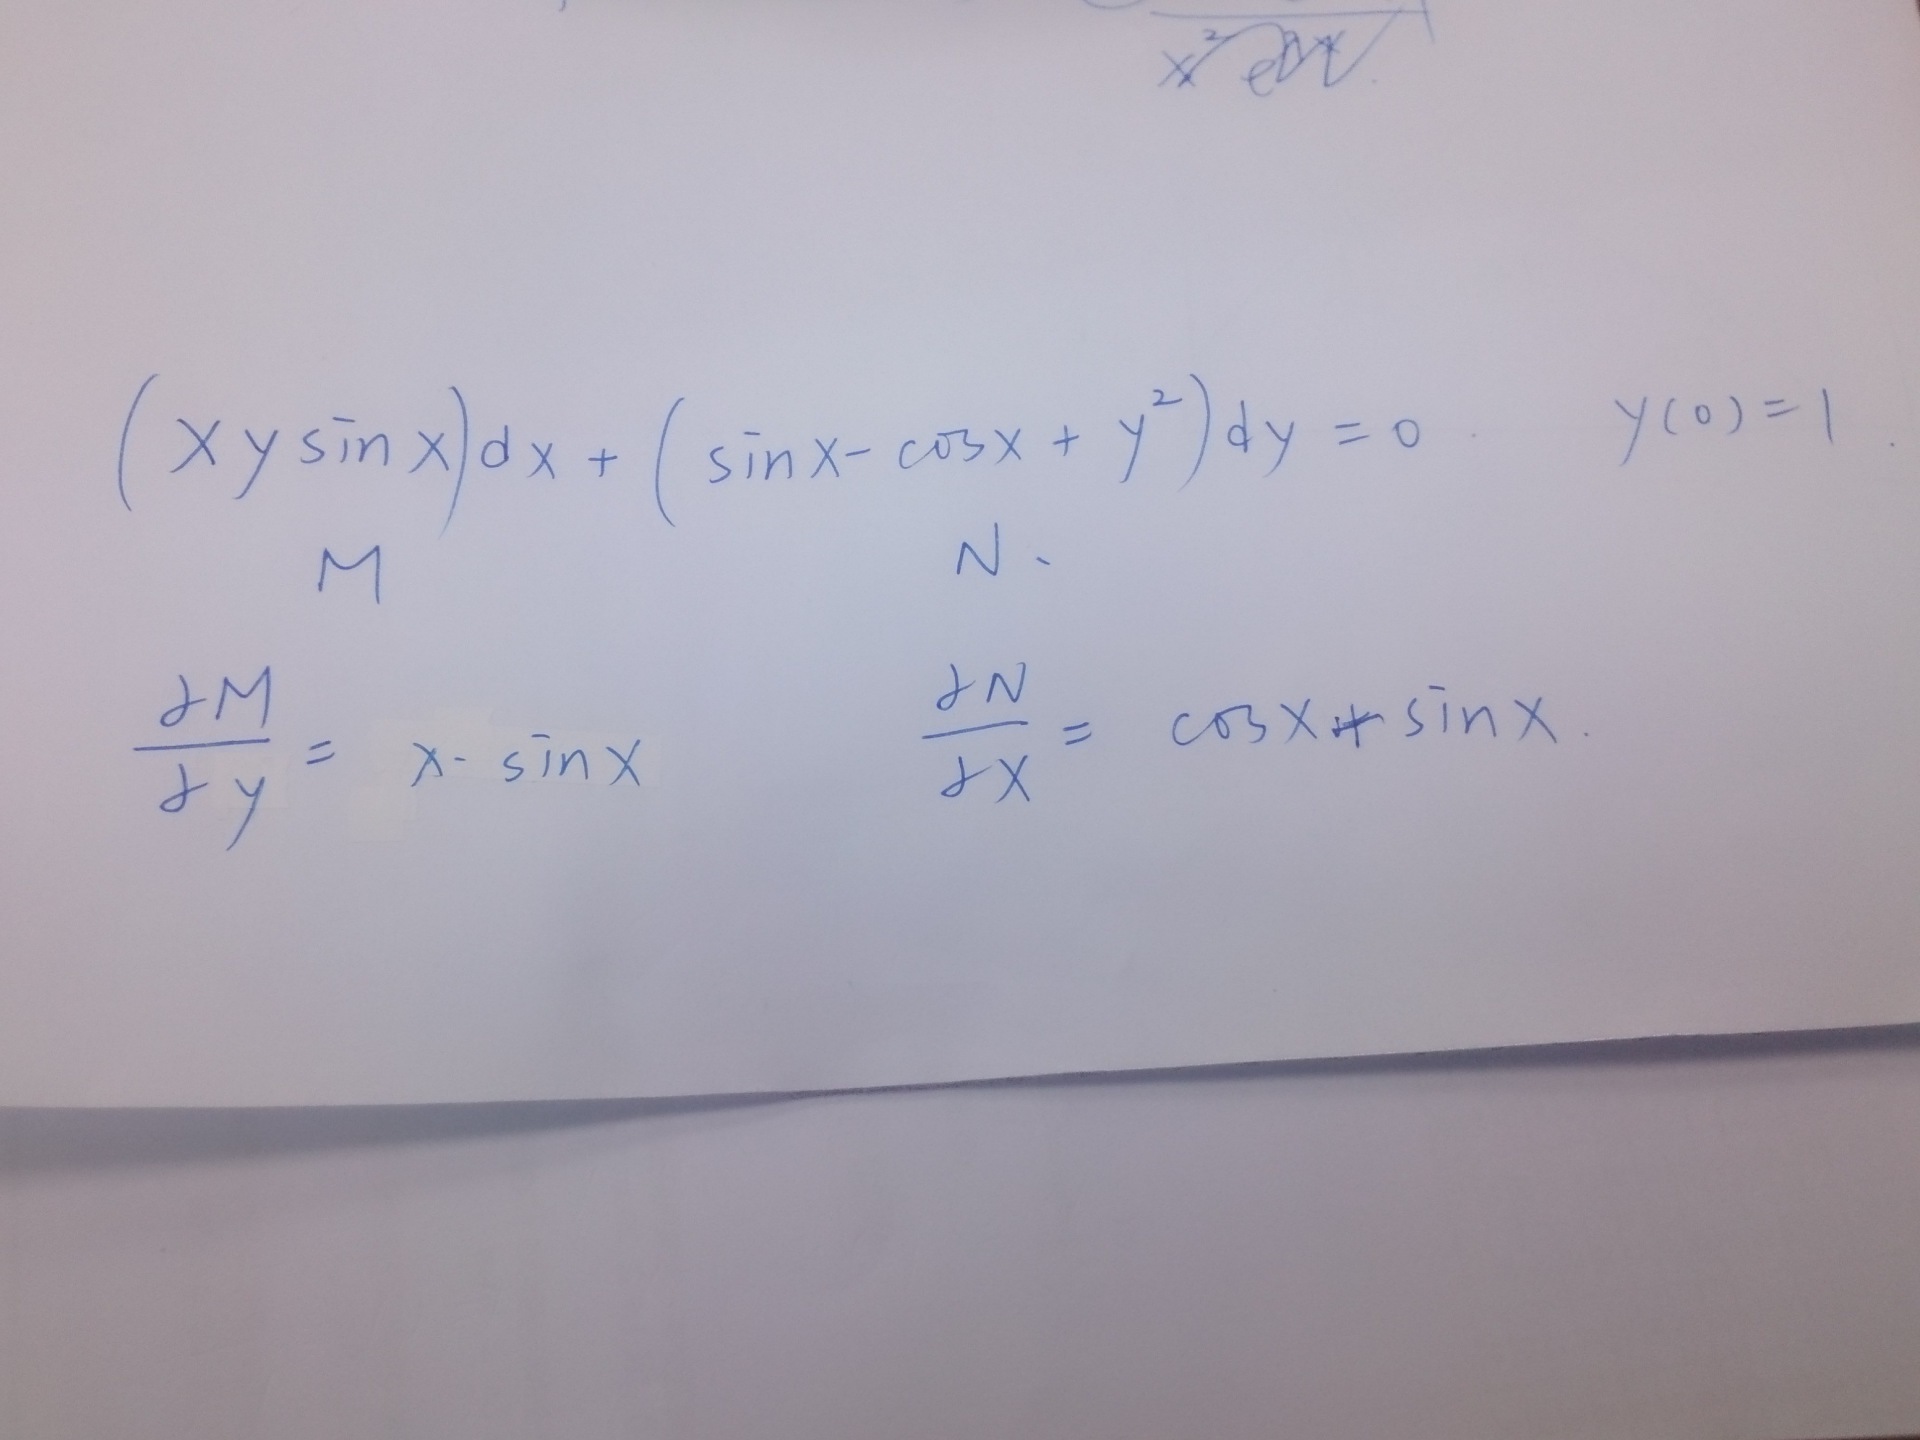 x²
(xy sin x)dx + (sin x - cos x + y²)dy = 0 y(0) = 1
M N
∂M/∂y = x - sin x ∂N/∂x = cos x + sin x.